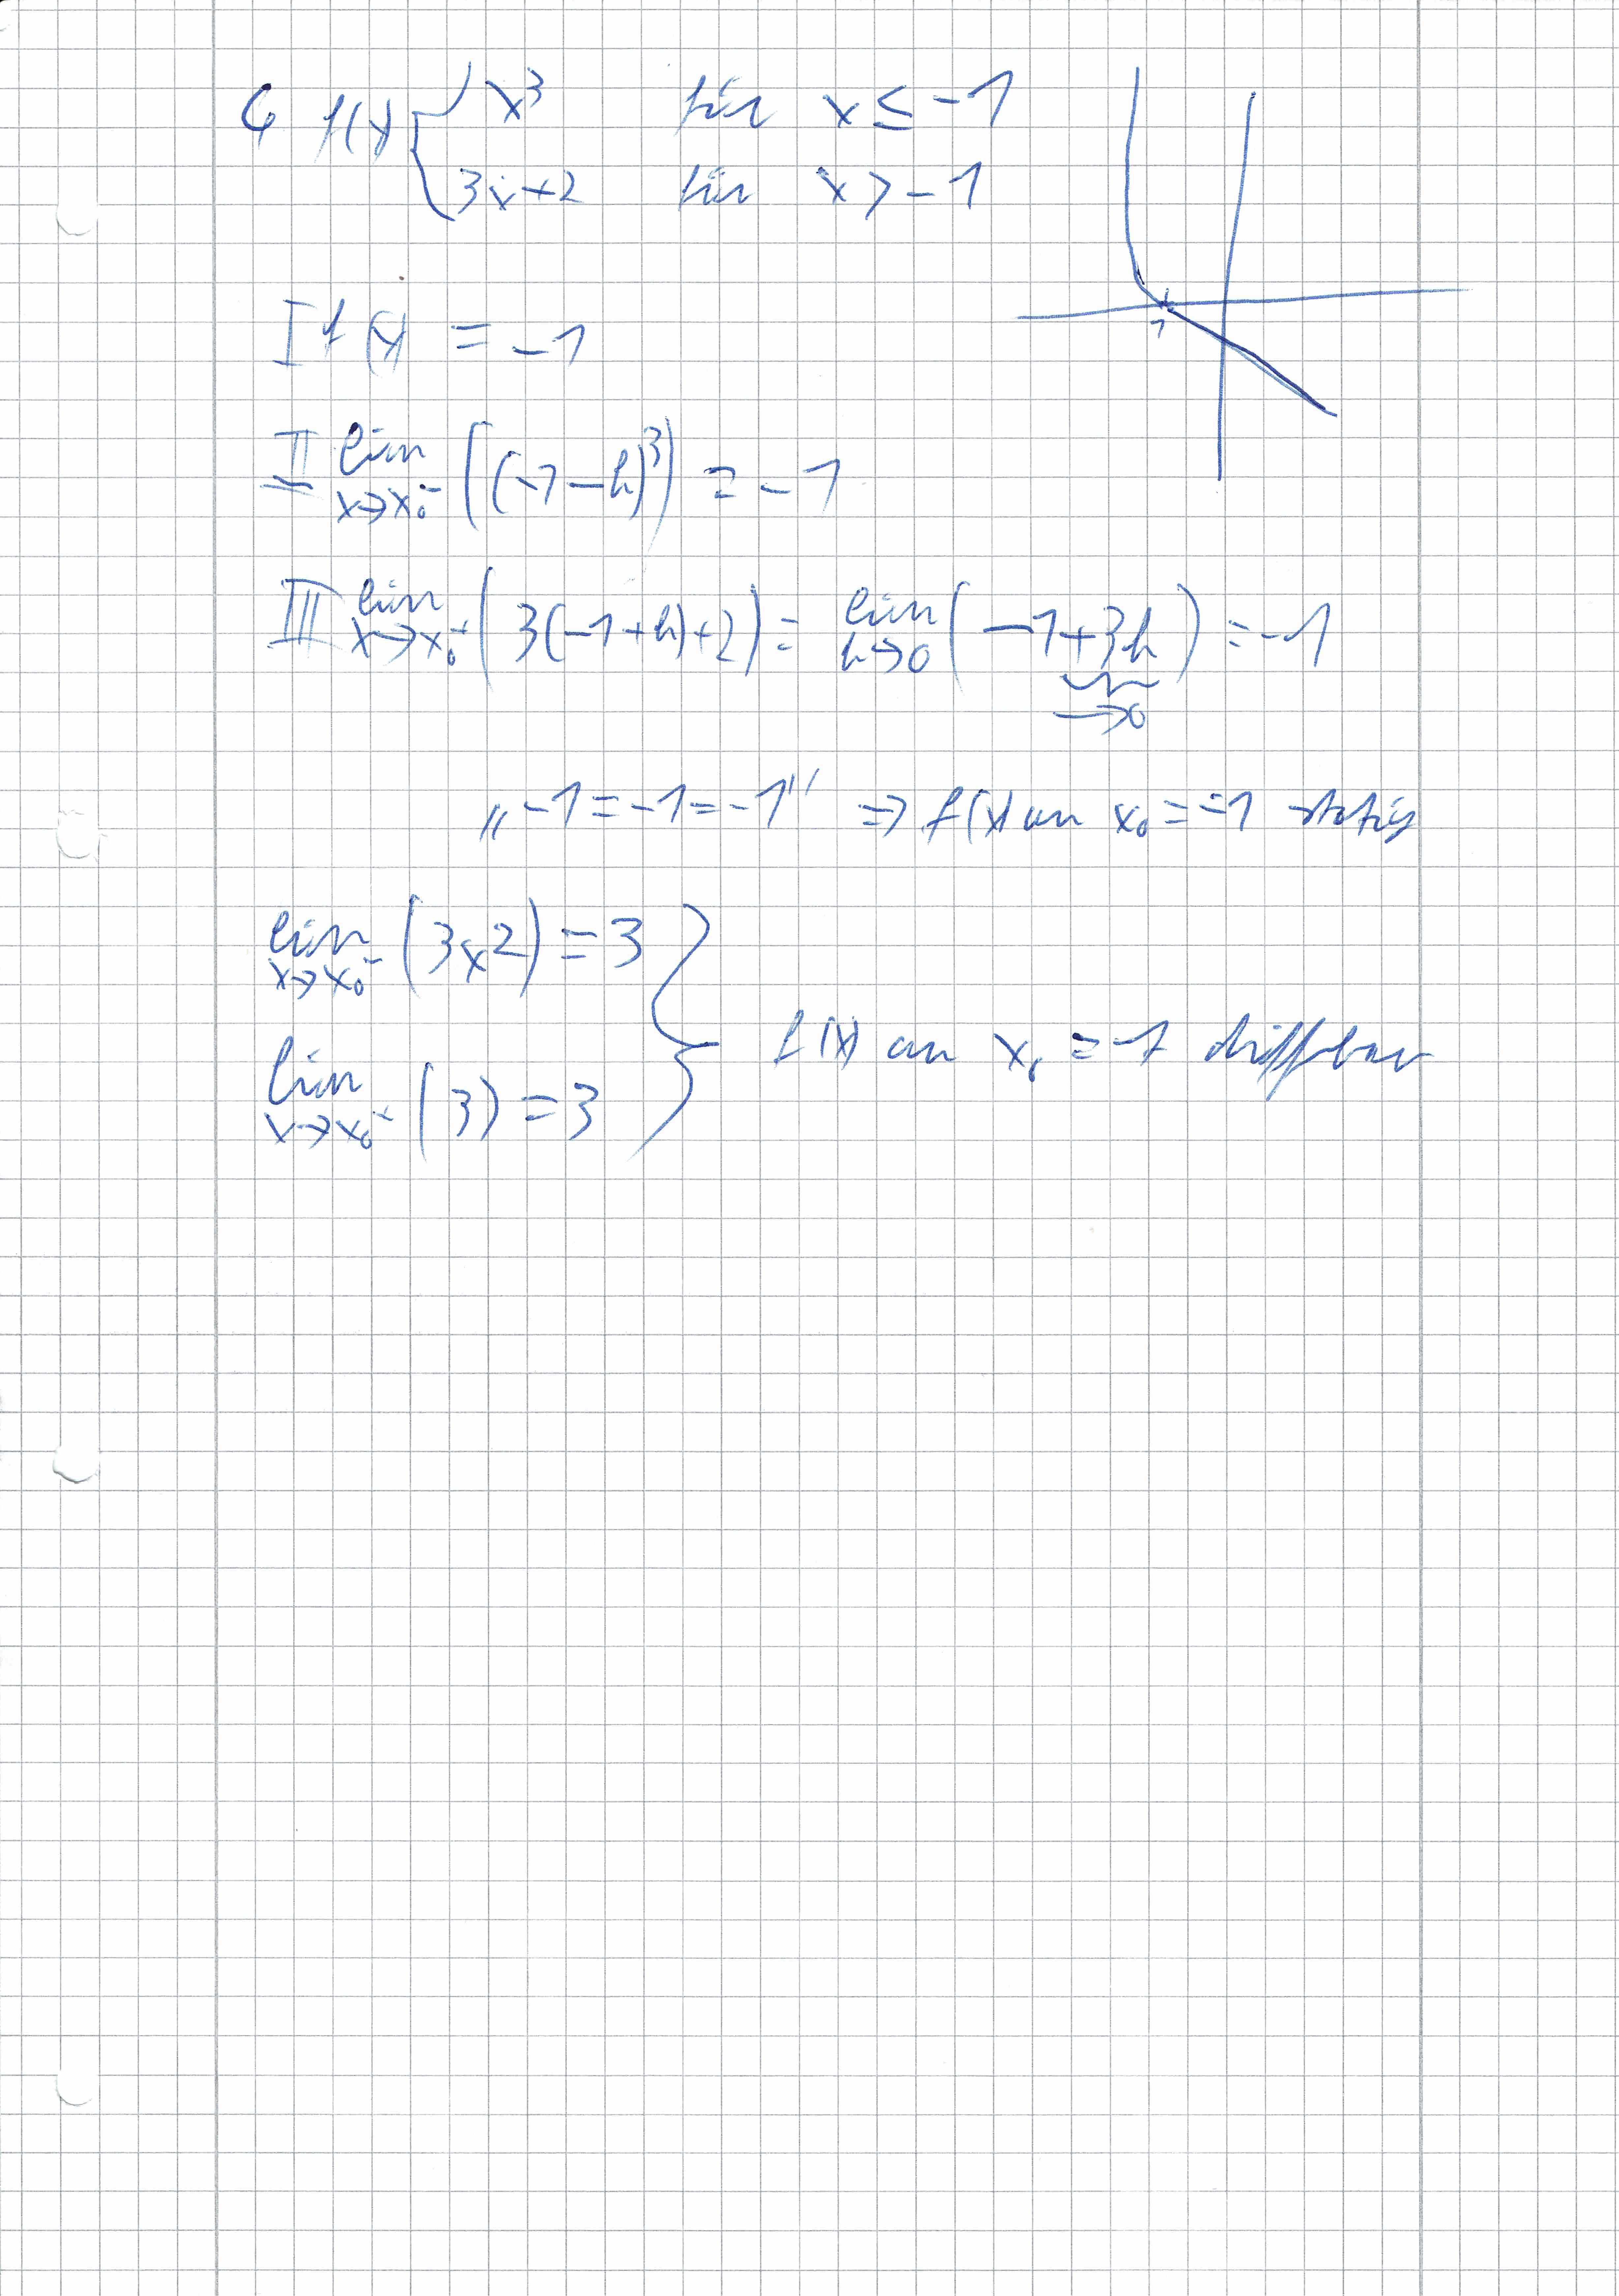 4 f(x) { x³ für x ≤ -1
3x+2 für x > -1
1
I f(x) = -1
II lim x→x₀⁻ ((-1-h)³) = -1
III lim x→x₀⁺ (3(-1+h)+2) = lim h→0 (-1+3h) = -1
→0
„-1=-1=-1" ⇒ f(x) an x₀=-1 stetig
lim x→x₀⁻ (3x²) = 3
f(x) an x₀ = -1 diffbar
lim x→x₀⁺ (3) = 3